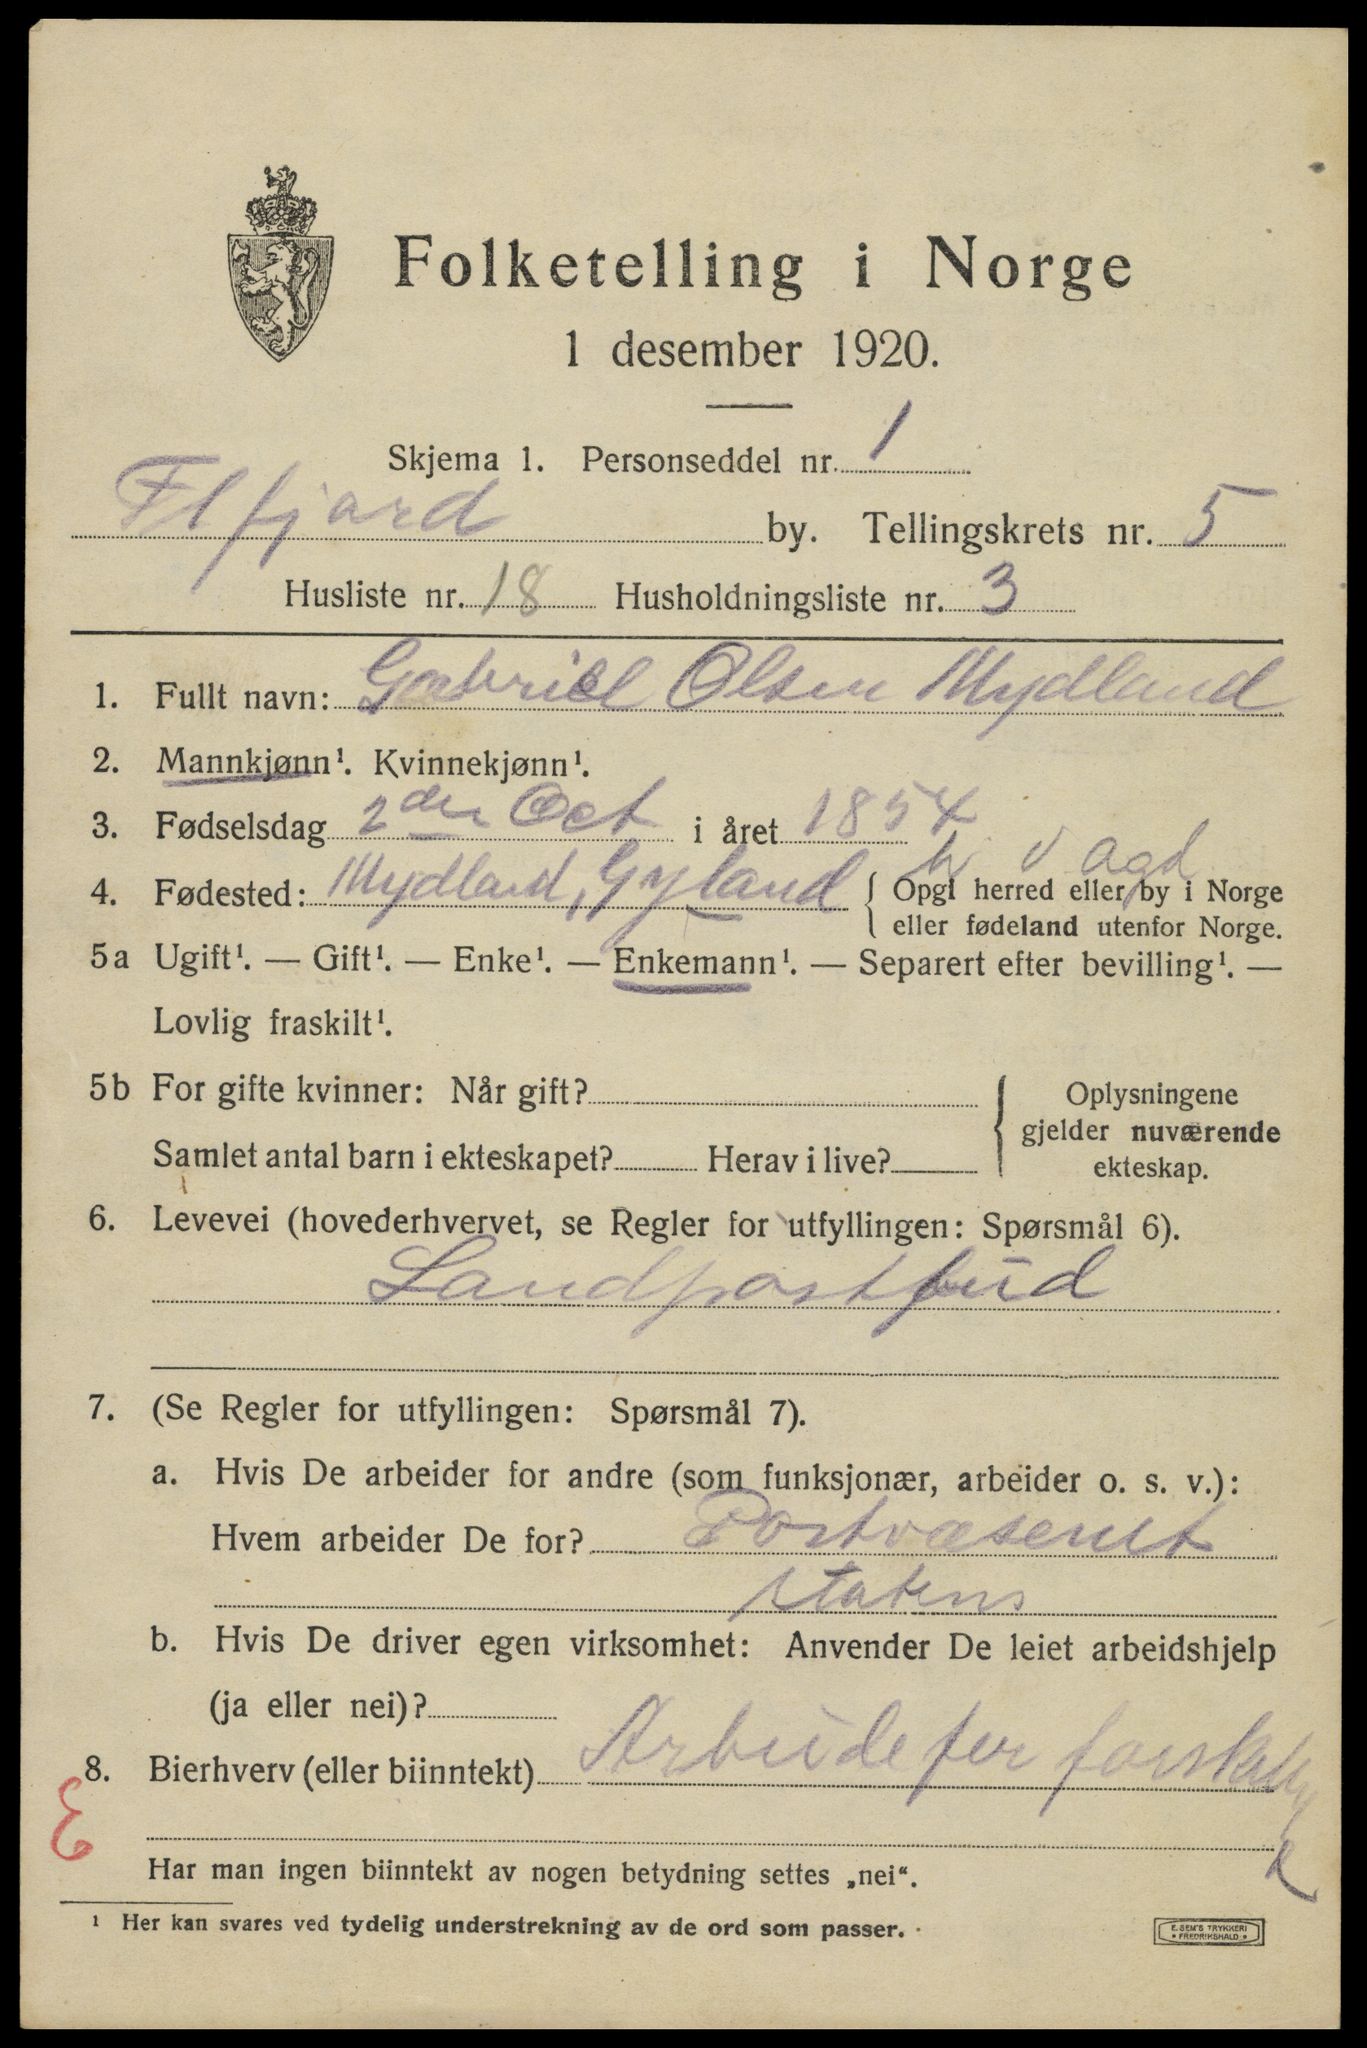 Folketelling i Norge
1 desember 1920.
Skjema 1. Personseddel nr. 1
Flfjord by. Tellingskrets nr. 5
Husliste nr. 18 Husholdningsliste nr. 3
1. Fullt navn: Gabriel Olsen Mydland
2. Mannkjønn¹. Kvinnekjønn¹.
3. Fødselsdag 2den Oct i året 1854
v agd
4. Fødested: Mydland, Gyland { Opgi herred eller by i Norge
eller fødeland utenfor Norge.
5a Ugift¹. — Gift¹. — Enke¹. — Enkemann¹. — Separert efter bevilling¹. —
Lovlig fraskilt¹.
5b For gifte kvinner: Når gift? { Oplysningene
gjelder nuværende
Samlet antal barn i ekteskapet? Herav i live? ekteskap.
6. Levevei (hovederhvervet, se Regler for utfyllingen: Spørsmål 6).
Landpostbud
7. (Se Regler for utfyllingen: Spørsmål 7).
a. Hvis De arbeider for andre (som funksjonær, arbeider o. s. v.):
Hvem arbeider De for? Postvæsenet
statens
b. Hvis De driver egen virksomhet: Anvender De leiet arbeidshjelp
(ja eller nei)?
8. Bierhverv (eller biinntekt) Arbeide for
E
Har man ingen biinntekt av nogen betydning settes „nei“.
¹ Her kan svares ved tydelig understrekning av de ord som passer.
E. SEM'S TRYKKERI
FREDRIKSHALD